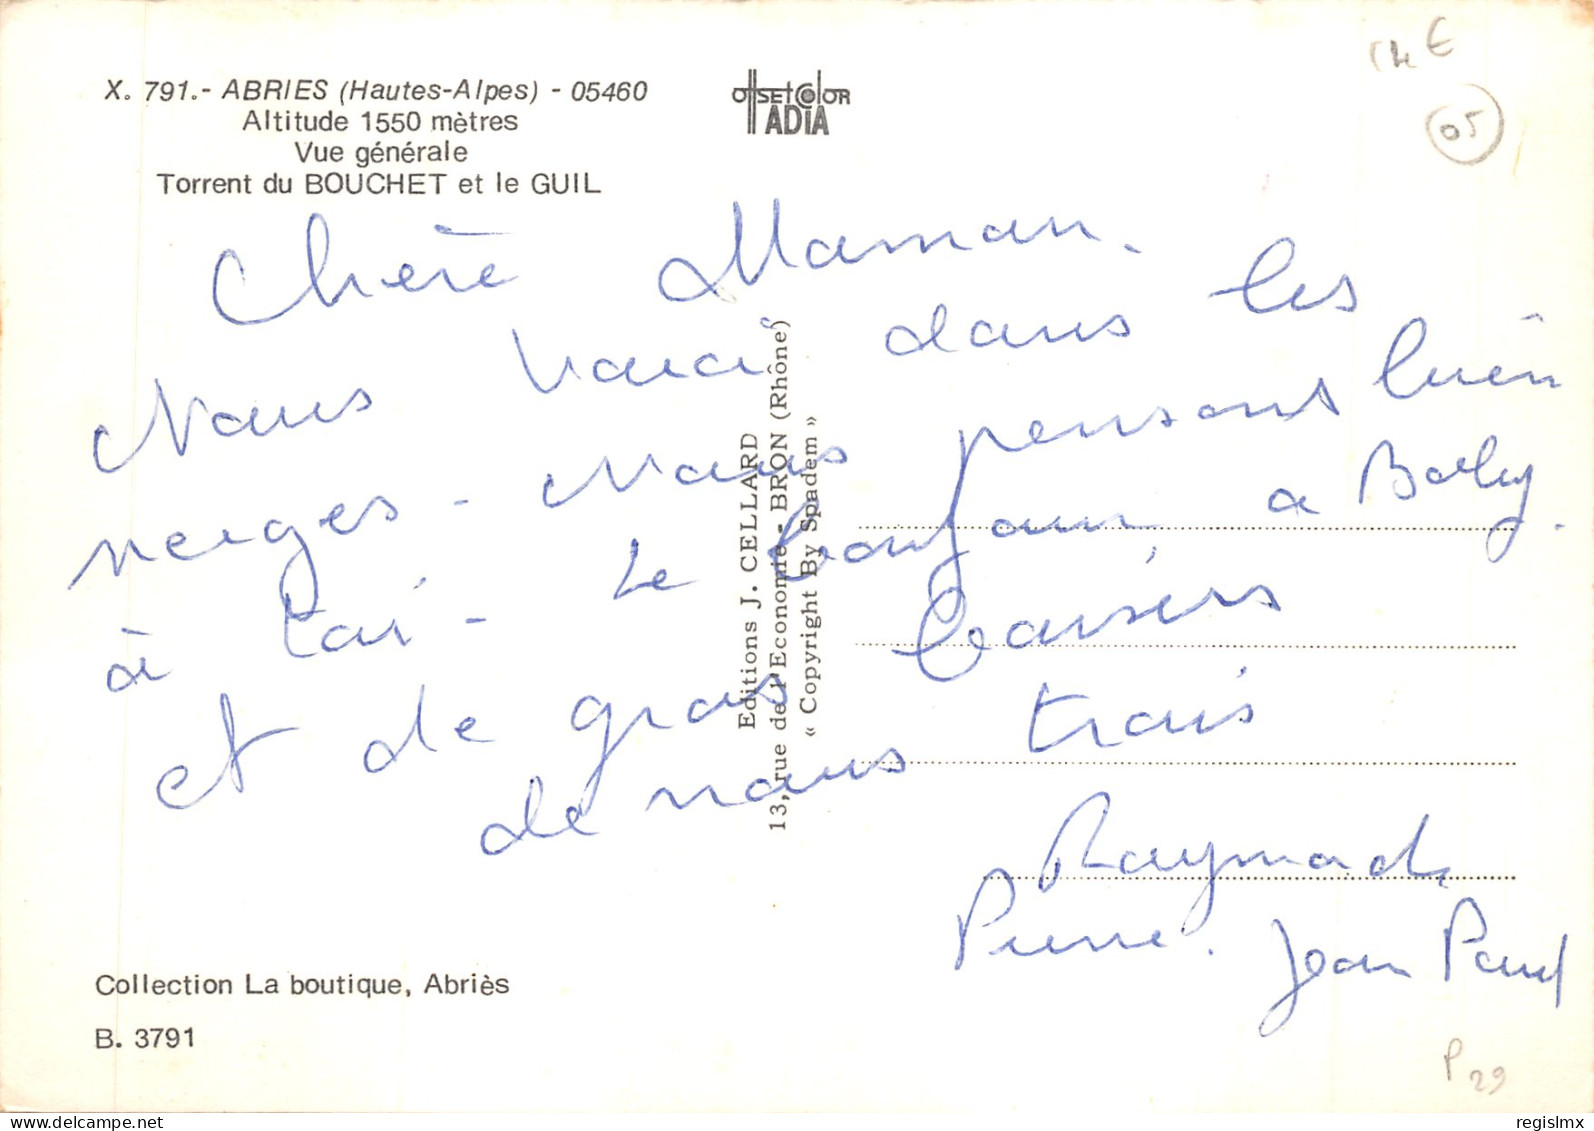 X. 791.- ABRIES (Hautes-Alpes) - 05460
Altitude 1550 mètres
Vue générale
Torrent du BOUCHET et le GUIL
OffSEt COlOR
ADIA
05
Chère Maman.
Nous voici dans les
neiges - Nous pensons bien
à toi - Le bonjour a
et de gros baisers
de nous trois
Pierre. Jean Paul
Editions J. CELLARD
13, rue de l'Economie - BRON (Rhône)
« Copyright By Spadem »
Collection La boutique, Abriès
B. 3791
P 29
regislmx